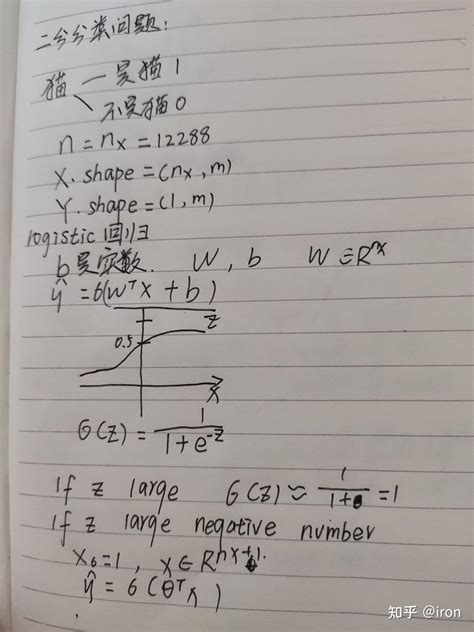 二分分类问题:
猫 — 是猫 1
不是猫 0
n = nx = 12288
X. shape = (nx, m)
Y. shape = (1, m)
logistic 回归
b是实数. W, b W ∈ R^nx
ŷ = 6(W^T X + b)
z
0.5
X
6(z) = 1/(1+e^-z)
If z large 6(z) ≈ 1/(1+0) = 1
If z large negative number
X0 = 1, x ∈ R^nx+1.
ŷ = 6(θ^T x)
知乎 @iron